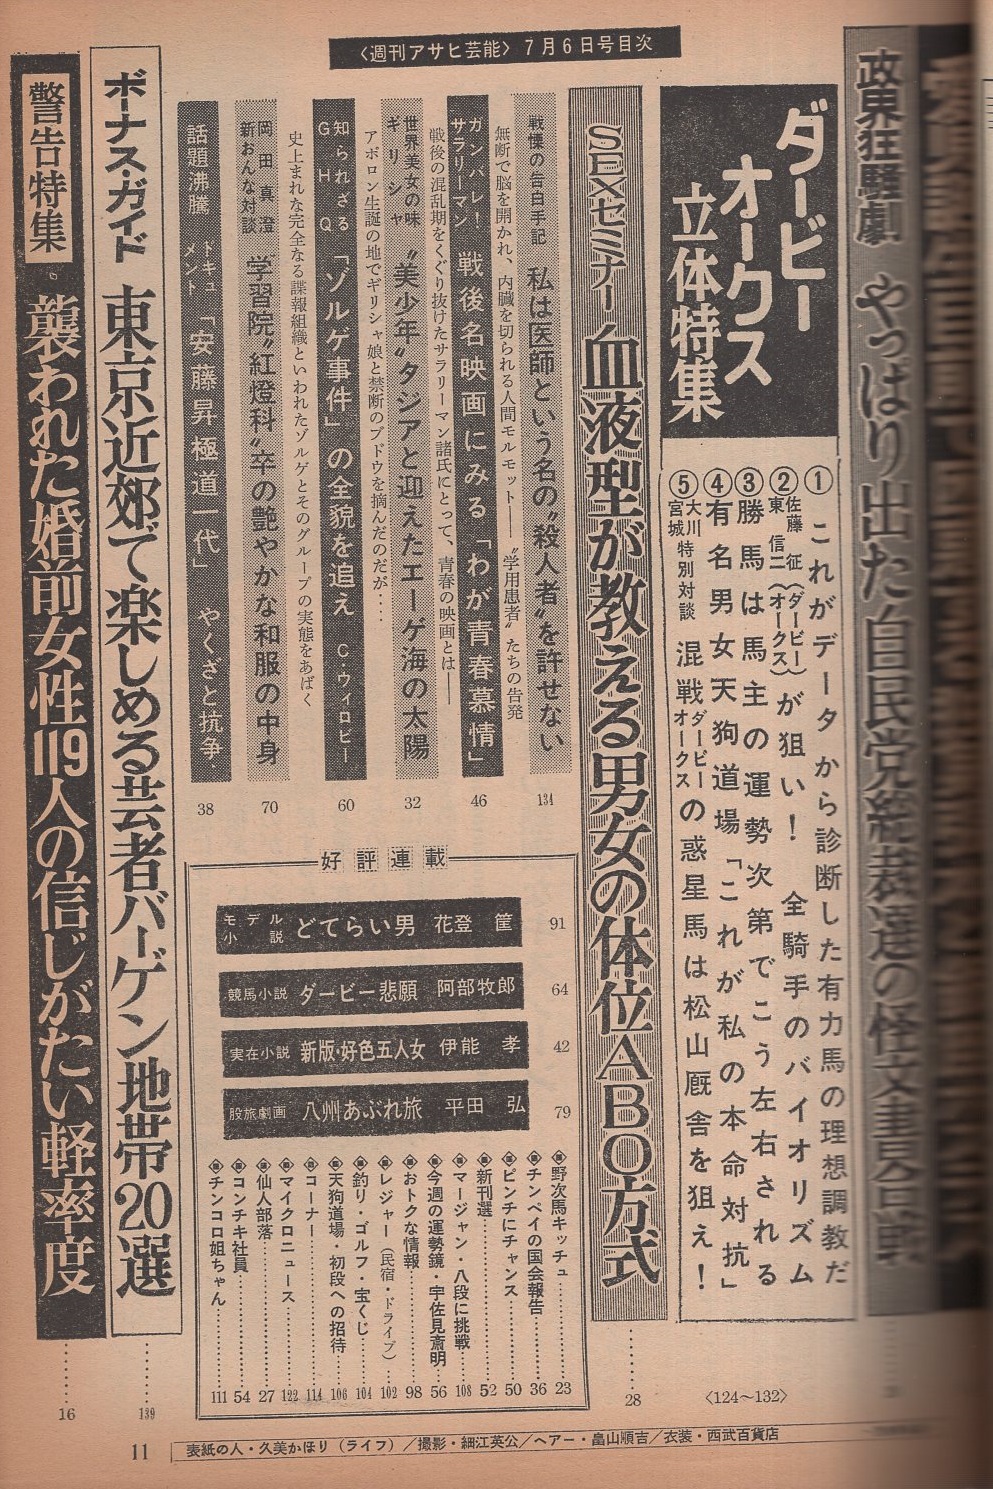 〈週刊アサヒ芸能〉7月6日号目次
政界狂騒劇 やっぱり出た自民党総裁選の怪文書合戦
ダービー
オークス
立体特集
①これがデータから診断した有力馬の理想調教だ
②佐藤征(ダービー)
東信二(オークス)が狙い! 全騎手のバイオリズム
③勝馬は馬主の運勢次第でこう左右される
④有名男女天狗道場「これが私の本命対抗」
⑤大川
宮城特別対談 混戦ダービー
オークスの惑星馬は松山厩舎を狙え!
〈124~132〉
SEXセミナー 血液型が教える男女の体位ABO方式
28
戦慄の告白手記 私は医師という名の〝殺人者〟を許せない
134
無断で脳を開かれ、内臓を切られる人間モルモット──〝学用患者〟たちの告発
ガンバレ!
サラリーマン 戦後名映画にみる「わが青春慕情」
46
戦後の混乱期をくぐり抜けたサラリーマン諸氏にとって、青春の映画とは──
世界美女の味
ギリシャ 〝美少年〟タジアと迎えたエーゲ海の太陽
32
アポロン生誕の地でギリシャ娘と禁断のブドウを摘んだのだが・・・
知られざる
GHQ 「ゾルゲ事件」の全貌を追え C・ウィロビー
60
史上まれな完全なる諜報組織といわれたゾルゲとそのグループの実態をあばく
岡田真澄
新おんな対談 〝学習院〟紅燈科〟卒の艶やかな和服の中身
70
話題沸騰 ドキュ
メント 「安藤昇極道一代」 やくざと抗争‥
38
好評連載
モデル
小説 どてらい男 花登筐 91
競馬小説 ダービー悲願 阿部牧郎 64
実在小説 新版・好色五人女 伊能孝 42
股旅劇画 八州あぶれ旅 平田弘 79
野次馬キッチュ 23
チンペイの国会報告 36
ピンチにチャンス 50
新刊選 52
マージャン・八段に挑戦 108
今週の運勢鏡・宇佐見斎明 56
おトクな情報 98
レジャー(民宿・ドライブ) 102
釣り・ゴルフ・宝くじ 104
天狗道場・初段への招待 106
コーナー 114
マイクロニュース 122
仙人部落 27
コンチキ社員 54
チンコロ姐ちゃん 111
ボーナス・ガイド 東京近郊で楽しめる芸者バーゲン地帯20選
139
警告特集 襲われた婚前女性119人の信じがたい軽率度
16
11 表紙の人・久美かほり(ライフ)/撮影・細江英公/ヘアー・畠山順吉/衣装・西武百貨店